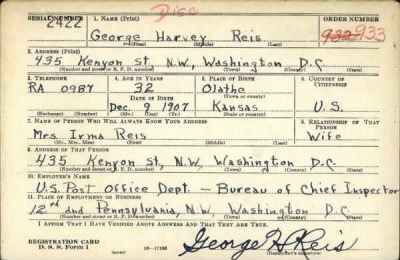 Disc
SERIAL NUMBER 1. NAME (Print) ORDER NUMBER
2422 George Harvey Reis 933 933
(First) (Middle) (Last)
2. ADDRESS (Print)
435 Kenyon St. N.W., Washington D.C.
(Number and street or R. F. D. number) (Town) (County) (State)
3. TELEPHONE 4. AGE IN YEARS 5. PLACE OF BIRTH 6. COUNTRY OF CITIZENSHIP
RA 0987 32 Olathe
DATE OF BIRTH (Town or county)
Dec. 9 1907 Kansas U.S.
(Exchange) (Number) (Mo.) (Day) (Yr.) (State or country)
7. NAME OF PERSON WHO WILL ALWAYS KNOW YOUR ADDRESS 8. RELATIONSHIP OF THAT PERSON
Mrs Irma Reis Wife
(Mr., Mrs., Miss) (First) (Middle) (Last)
9. ADDRESS OF THAT PERSON
435 Kenyon St., N.W. Washington D.C.
(Number and street or R. F. D. number) (Town) (County) (State)
10. EMPLOYER'S NAME
U.S. Post Office Dept. — Bureau of Chief Inspector
11. PLACE OF EMPLOYMENT OR BUSINESS
12nd and Pennsylvania, N.W. Washington D.C.
(Number and street or R. F. D. number) (Town) (County) (State)
I AFFIRM THAT I HAVE VERIFIED ABOVE ANSWERS AND THAT THEY ARE TRUE.
REGISTRATION CARD
D. S. S. Form 1 George H Reis
(Registrant's signature)